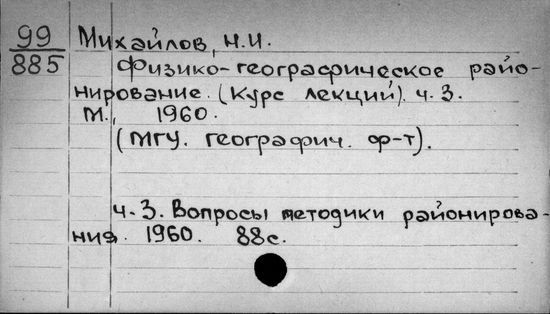 99
885
Михайлов, Н.И.
Физико-географическое райо-
нирование. (Курс лекций). ч. 3.
М., 1960.
(МГУ. географич. ф-т).
ч. 3. Вопросы методики районирова-
ния. 1960. 88с.